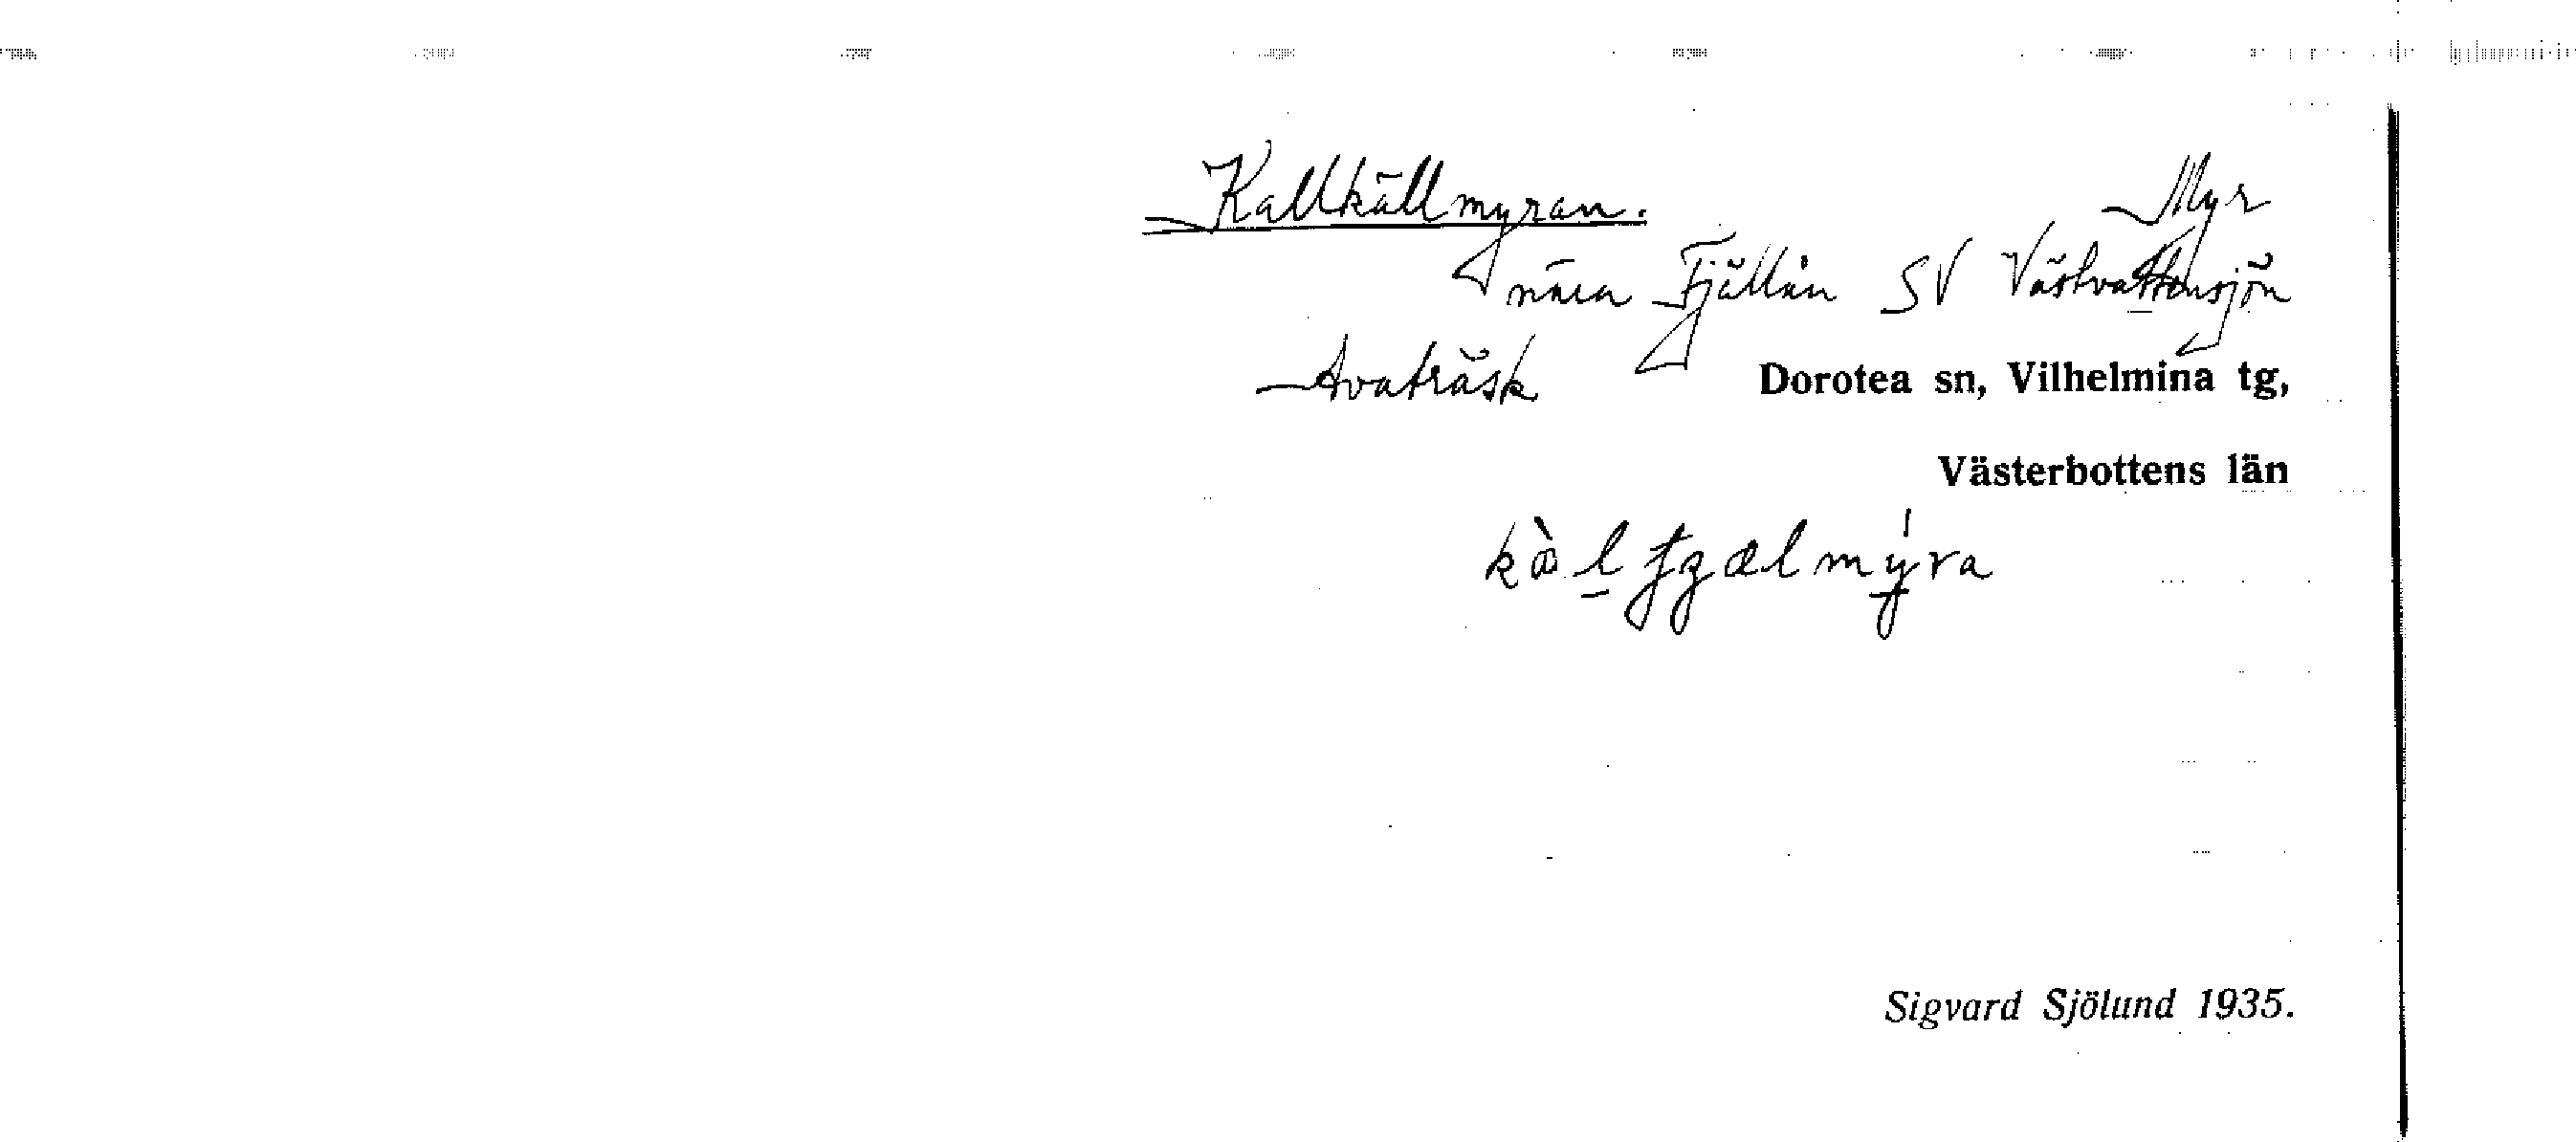 Kallkällmyran. Myr
nära Fjällån SV Västvattensjön
Avaträsk Dorotea sn, Vilhelmina tg,
Västerbottens län
Sigvard Sjölund 1935.